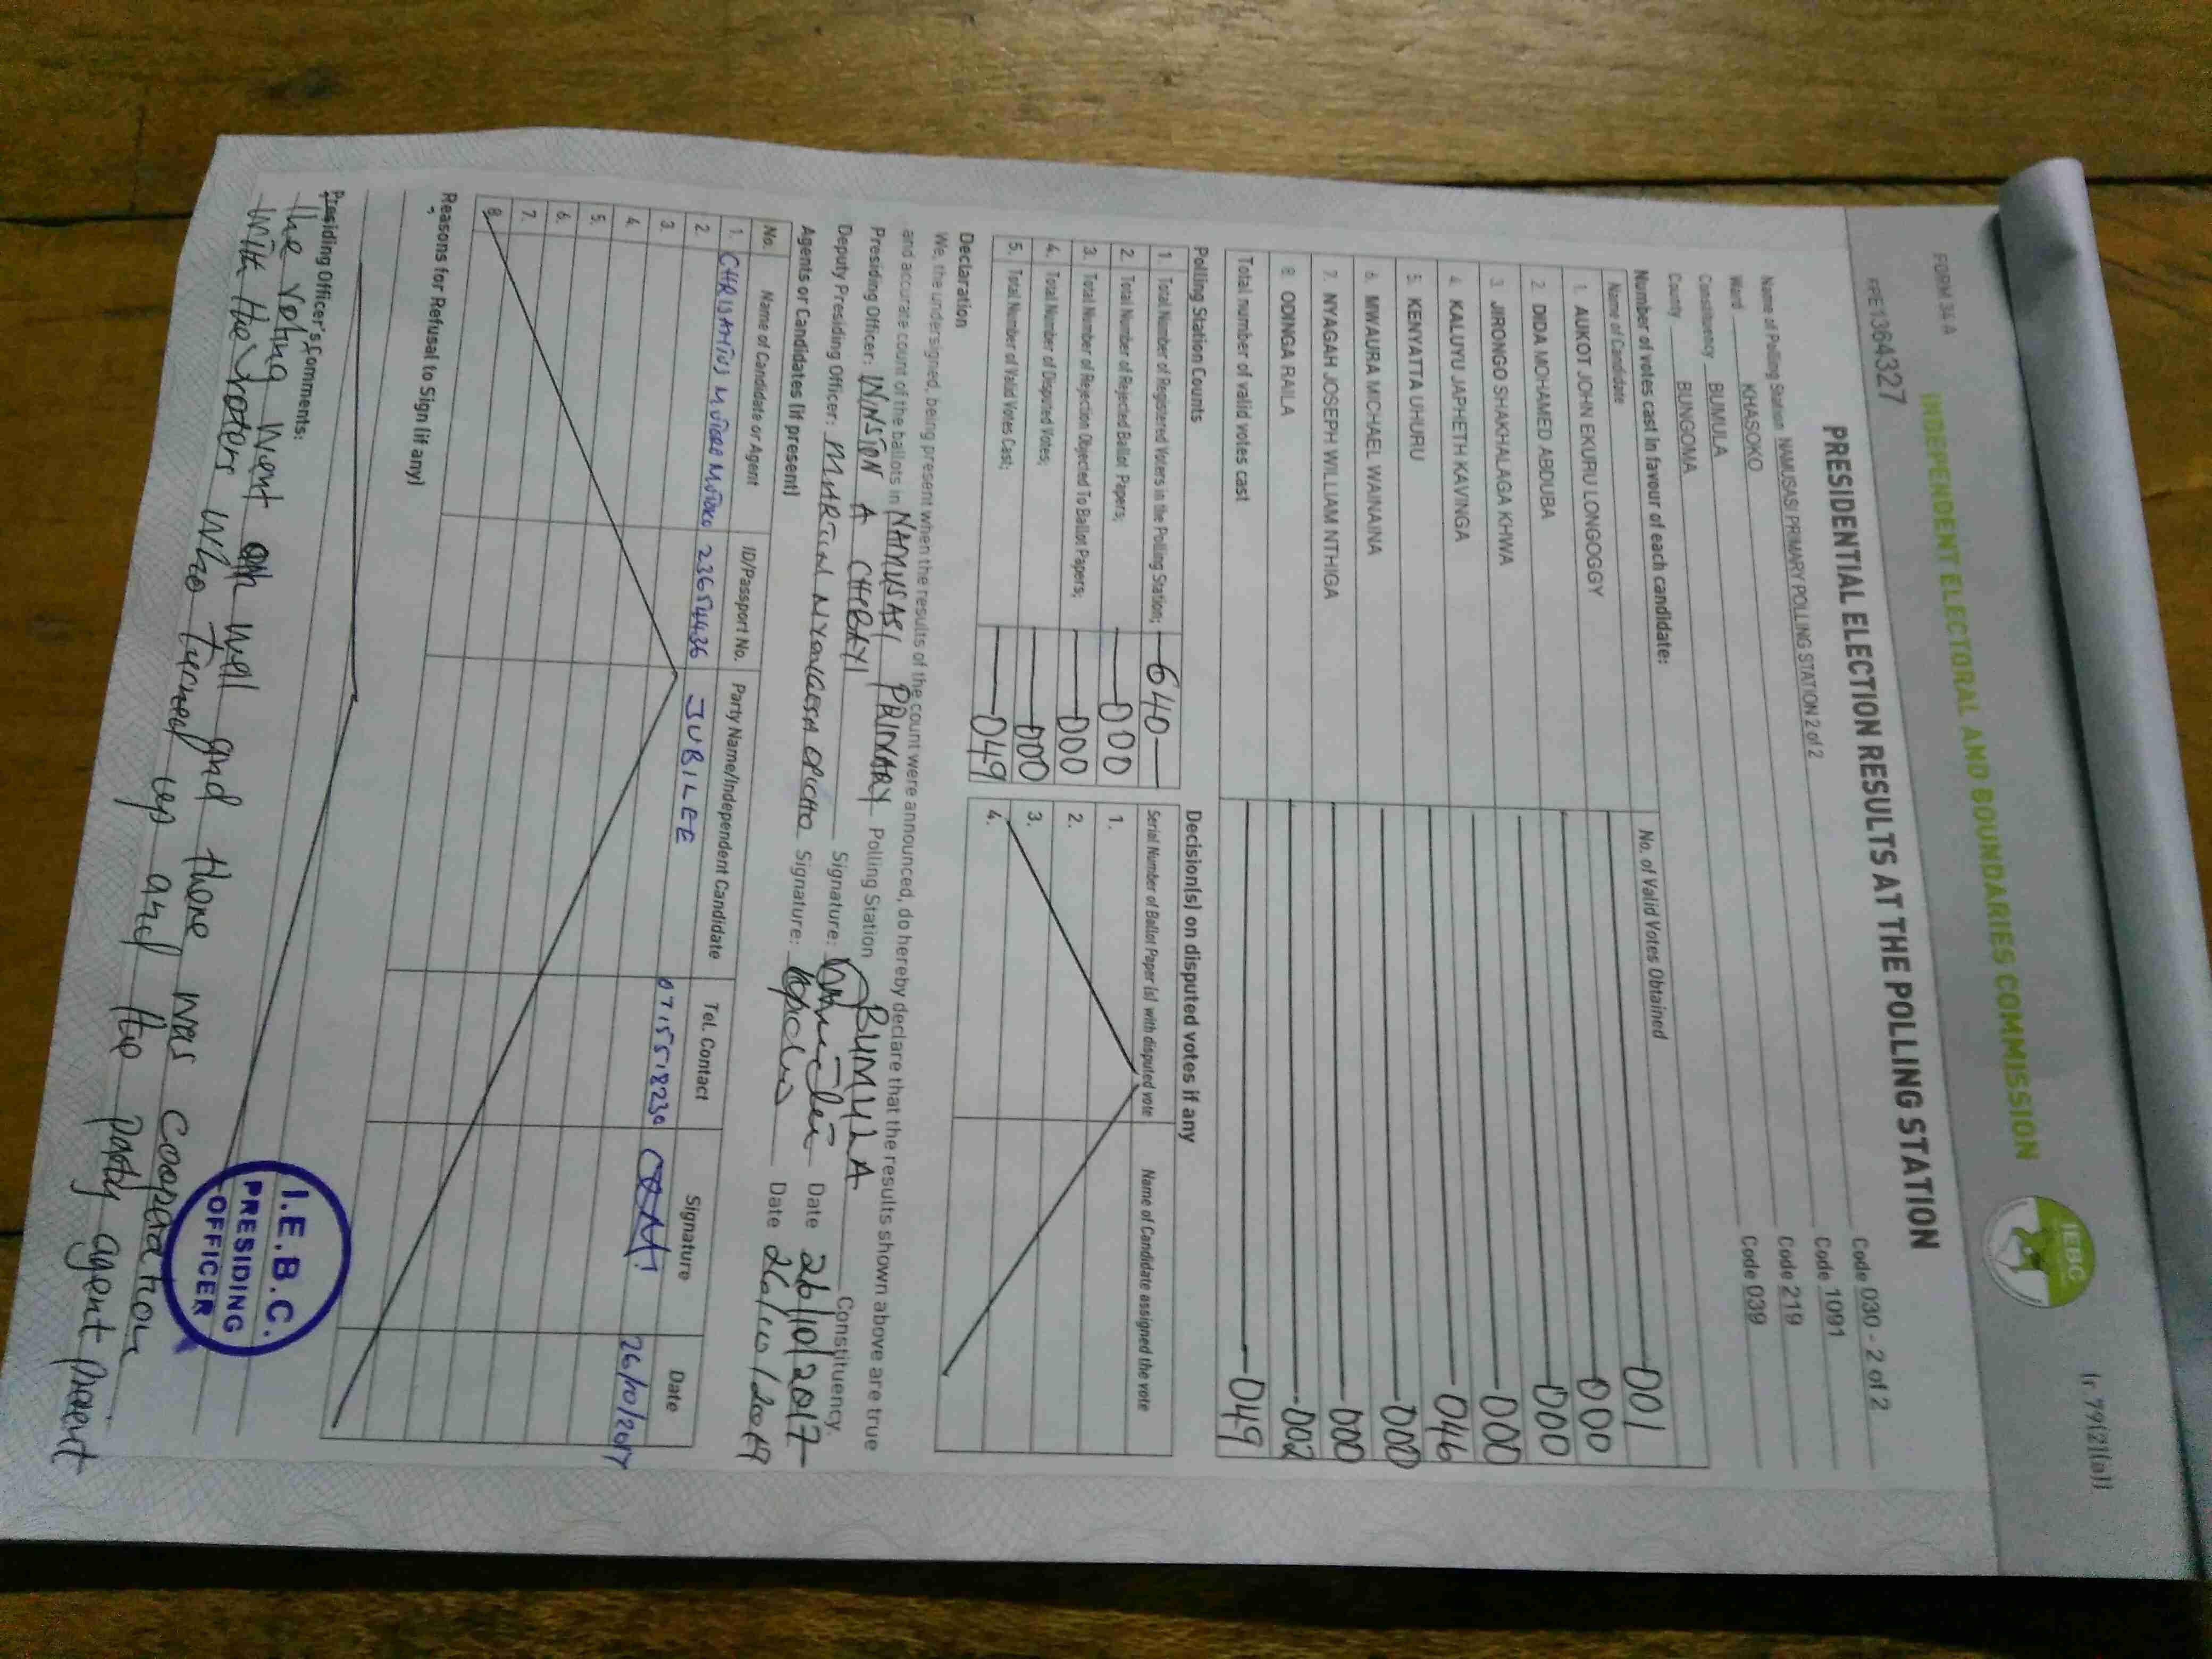 FORM 34 A
(r.79(2)(a))
INDEPENDENT ELECTORAL AND BOUNDARIES COMMISSION
IEBC
PRE1364327
PRESIDENTIAL ELECTION RESULTS AT THE POLLING STATION
Name of Polling Station NAMUSASI PRIMARY POLLING STATION 2 of 2 Code 030 - 2 of 2
Ward KHASOKO Code 1091
Constituency BUMULA Code 219
County BUNGOMA Code 039
Number of votes cast in favour of each candidate:
Name of Candidate No. of Valid Votes Obtained
1. AUKOT JOHN EKURU LONGOGGY 001
2. DIDA MOHAMED ABDUBA 000
3. JIRONGO SHAKHALAGA KHWA 000
4. KALUYU JAPHETH KAVINGA 000
5. KENYATTA UHURU 046
6. MWAURA MICHAEL WAINAINA 000
7. NYAGAH JOSEPH WILLIAM NTHIGA 000
8. ODINGA RAILA 002
Total number of valid votes cast 049
Polling Station Counts
1. Total Number of Registered Voters in the Polling Station; 640
2. Total Number of Rejected Ballot Papers; 000
3. Total Number of Rejection Objected To Ballot Papers; 000
4. Total Number of Disputed Votes; 000
5. Total Number of Valid Votes Cast; 049
Decision(s) on disputed votes if any
Serial Number of Ballot Paper (s) with disputed vote Name of Candidate assigned the vote
1.
2.
3.
4.
Declaration
We, the undersigned, being present when the results of the count were announced, do hereby declare that the results shown above are true
and accurate count of the ballots in NAMUSASI PRIMARY Polling Station BUMULA Constituency.
Presiding Officer: WINSTON A CHEBAYI Signature: Date 26/10/2017
Deputy Presiding Officer: MARTIN Signature: Date 26/10/2017
Agents or Candidates (if present)
No. Name of Candidate or Agent ID/Passport No. Party Name/Independent Candidate Tel. Contact Signature Date
1. 23654436 JUBILEE 0715518230 26/10/2017
2.
3.
4.
5.
6.
7.
8.
Reasons for Refusal to Sign (if any)
Presiding Officer's Comments:
The voting went on well and there was cooperation
with the voters who turned up and the party agent present
I.E.B.C.
PRESIDING
OFFICER